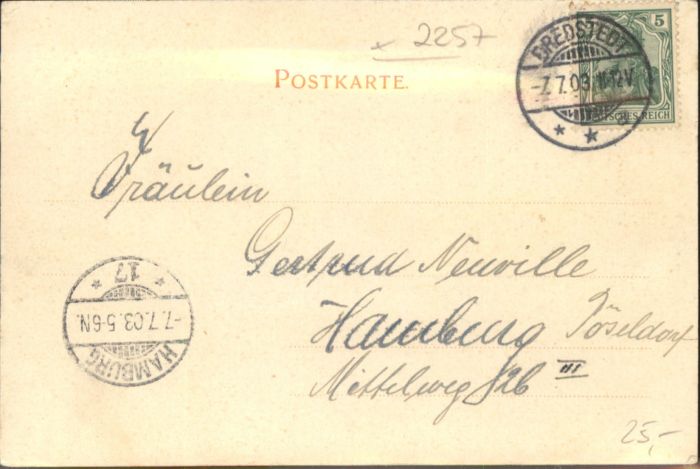 x 2257
BREDSTEDT
-7.7.03.11-12V.
5
DEUTSCHES REICH
POSTKARTE.
Fräulein
Gertrud Neuville
Hamburg Pöseldorf
Mittelweg 82b III
HAMBURG
-7.7.03.5-6N.
* 17 *
25,-